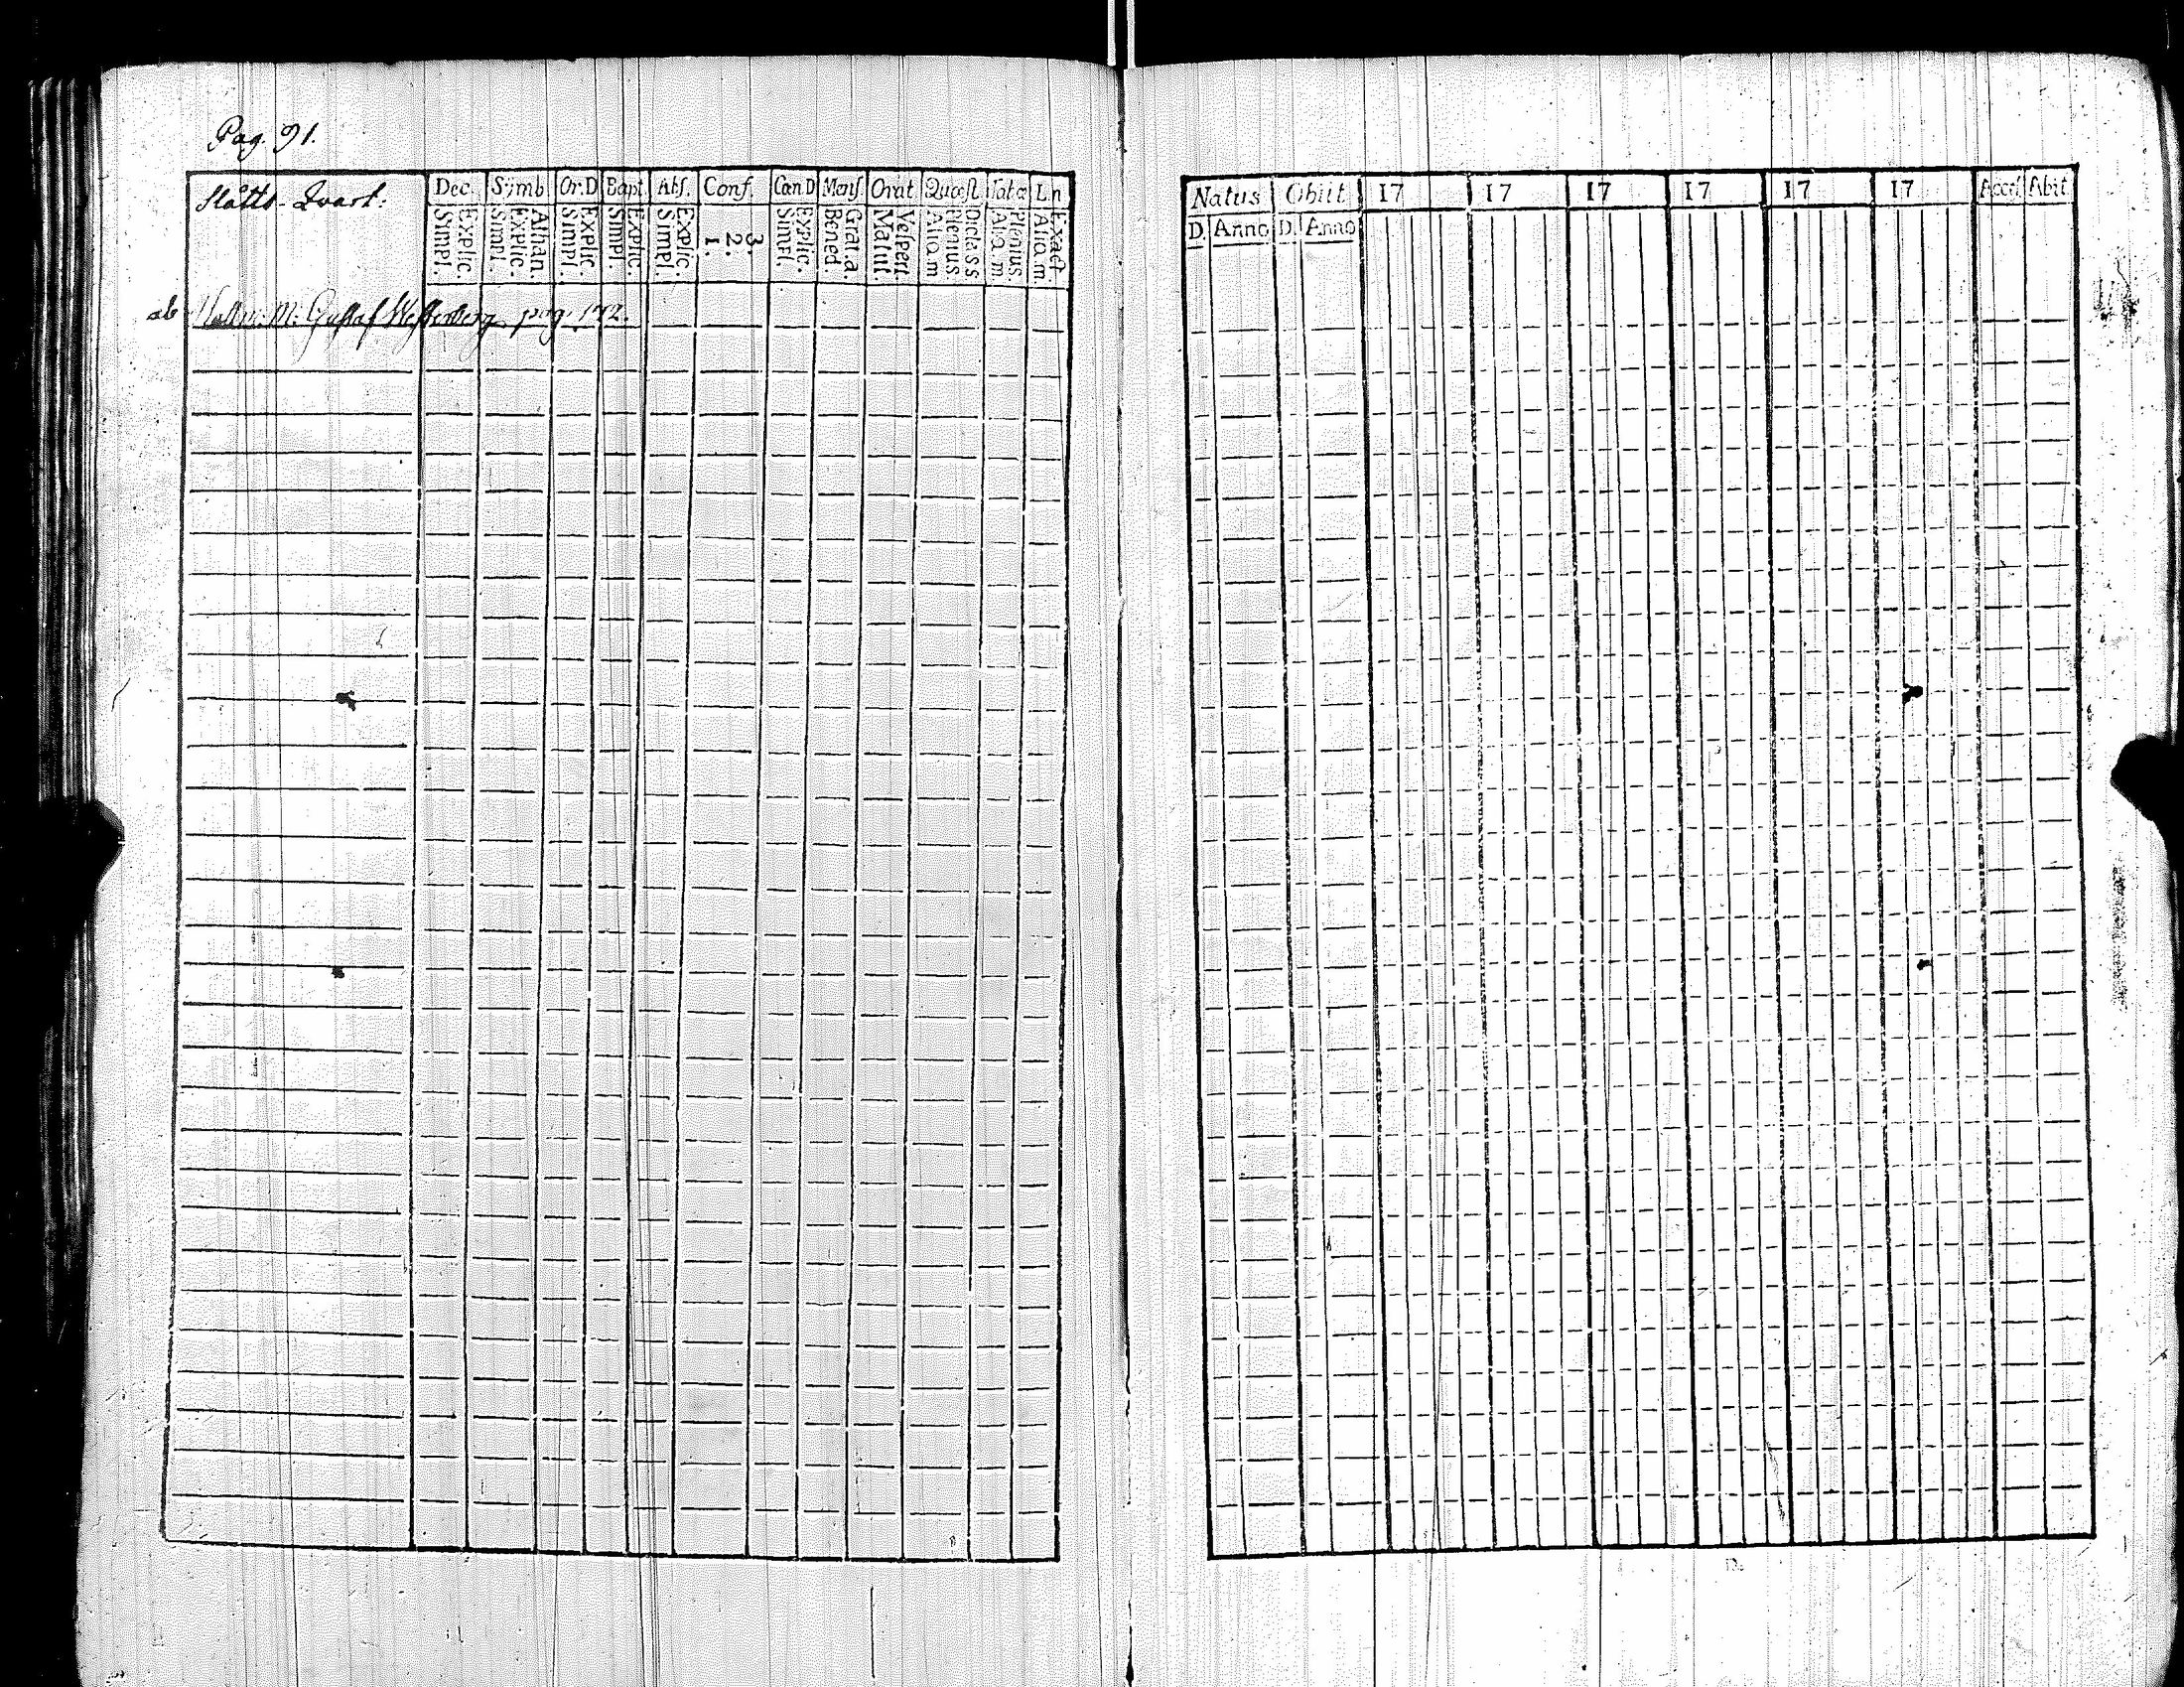 Pag. 91.
Slåtts-Qvart:
Dec. Symb Or.D Bapt. Abs. Conf. Can.D Mens. Orat Quæst Tabæ L.n
Simpl. Explic. Simpl. Explic. Athan. Simpl. Explic. Simpl. Explic. Simpl. Explic. 1. 2. 3. Simpl. Explic. Bened. Grat. a. Matut. Vespert. Aliq. m Plenius. Dicta s s. Aliq. m. Plenius. Aliq. m. Exact
ab M: Gustaf Westerberg pag. 172.
Natus Obiit 17 17 17 17 17 17 Access Abit
D. Anno D. Anno